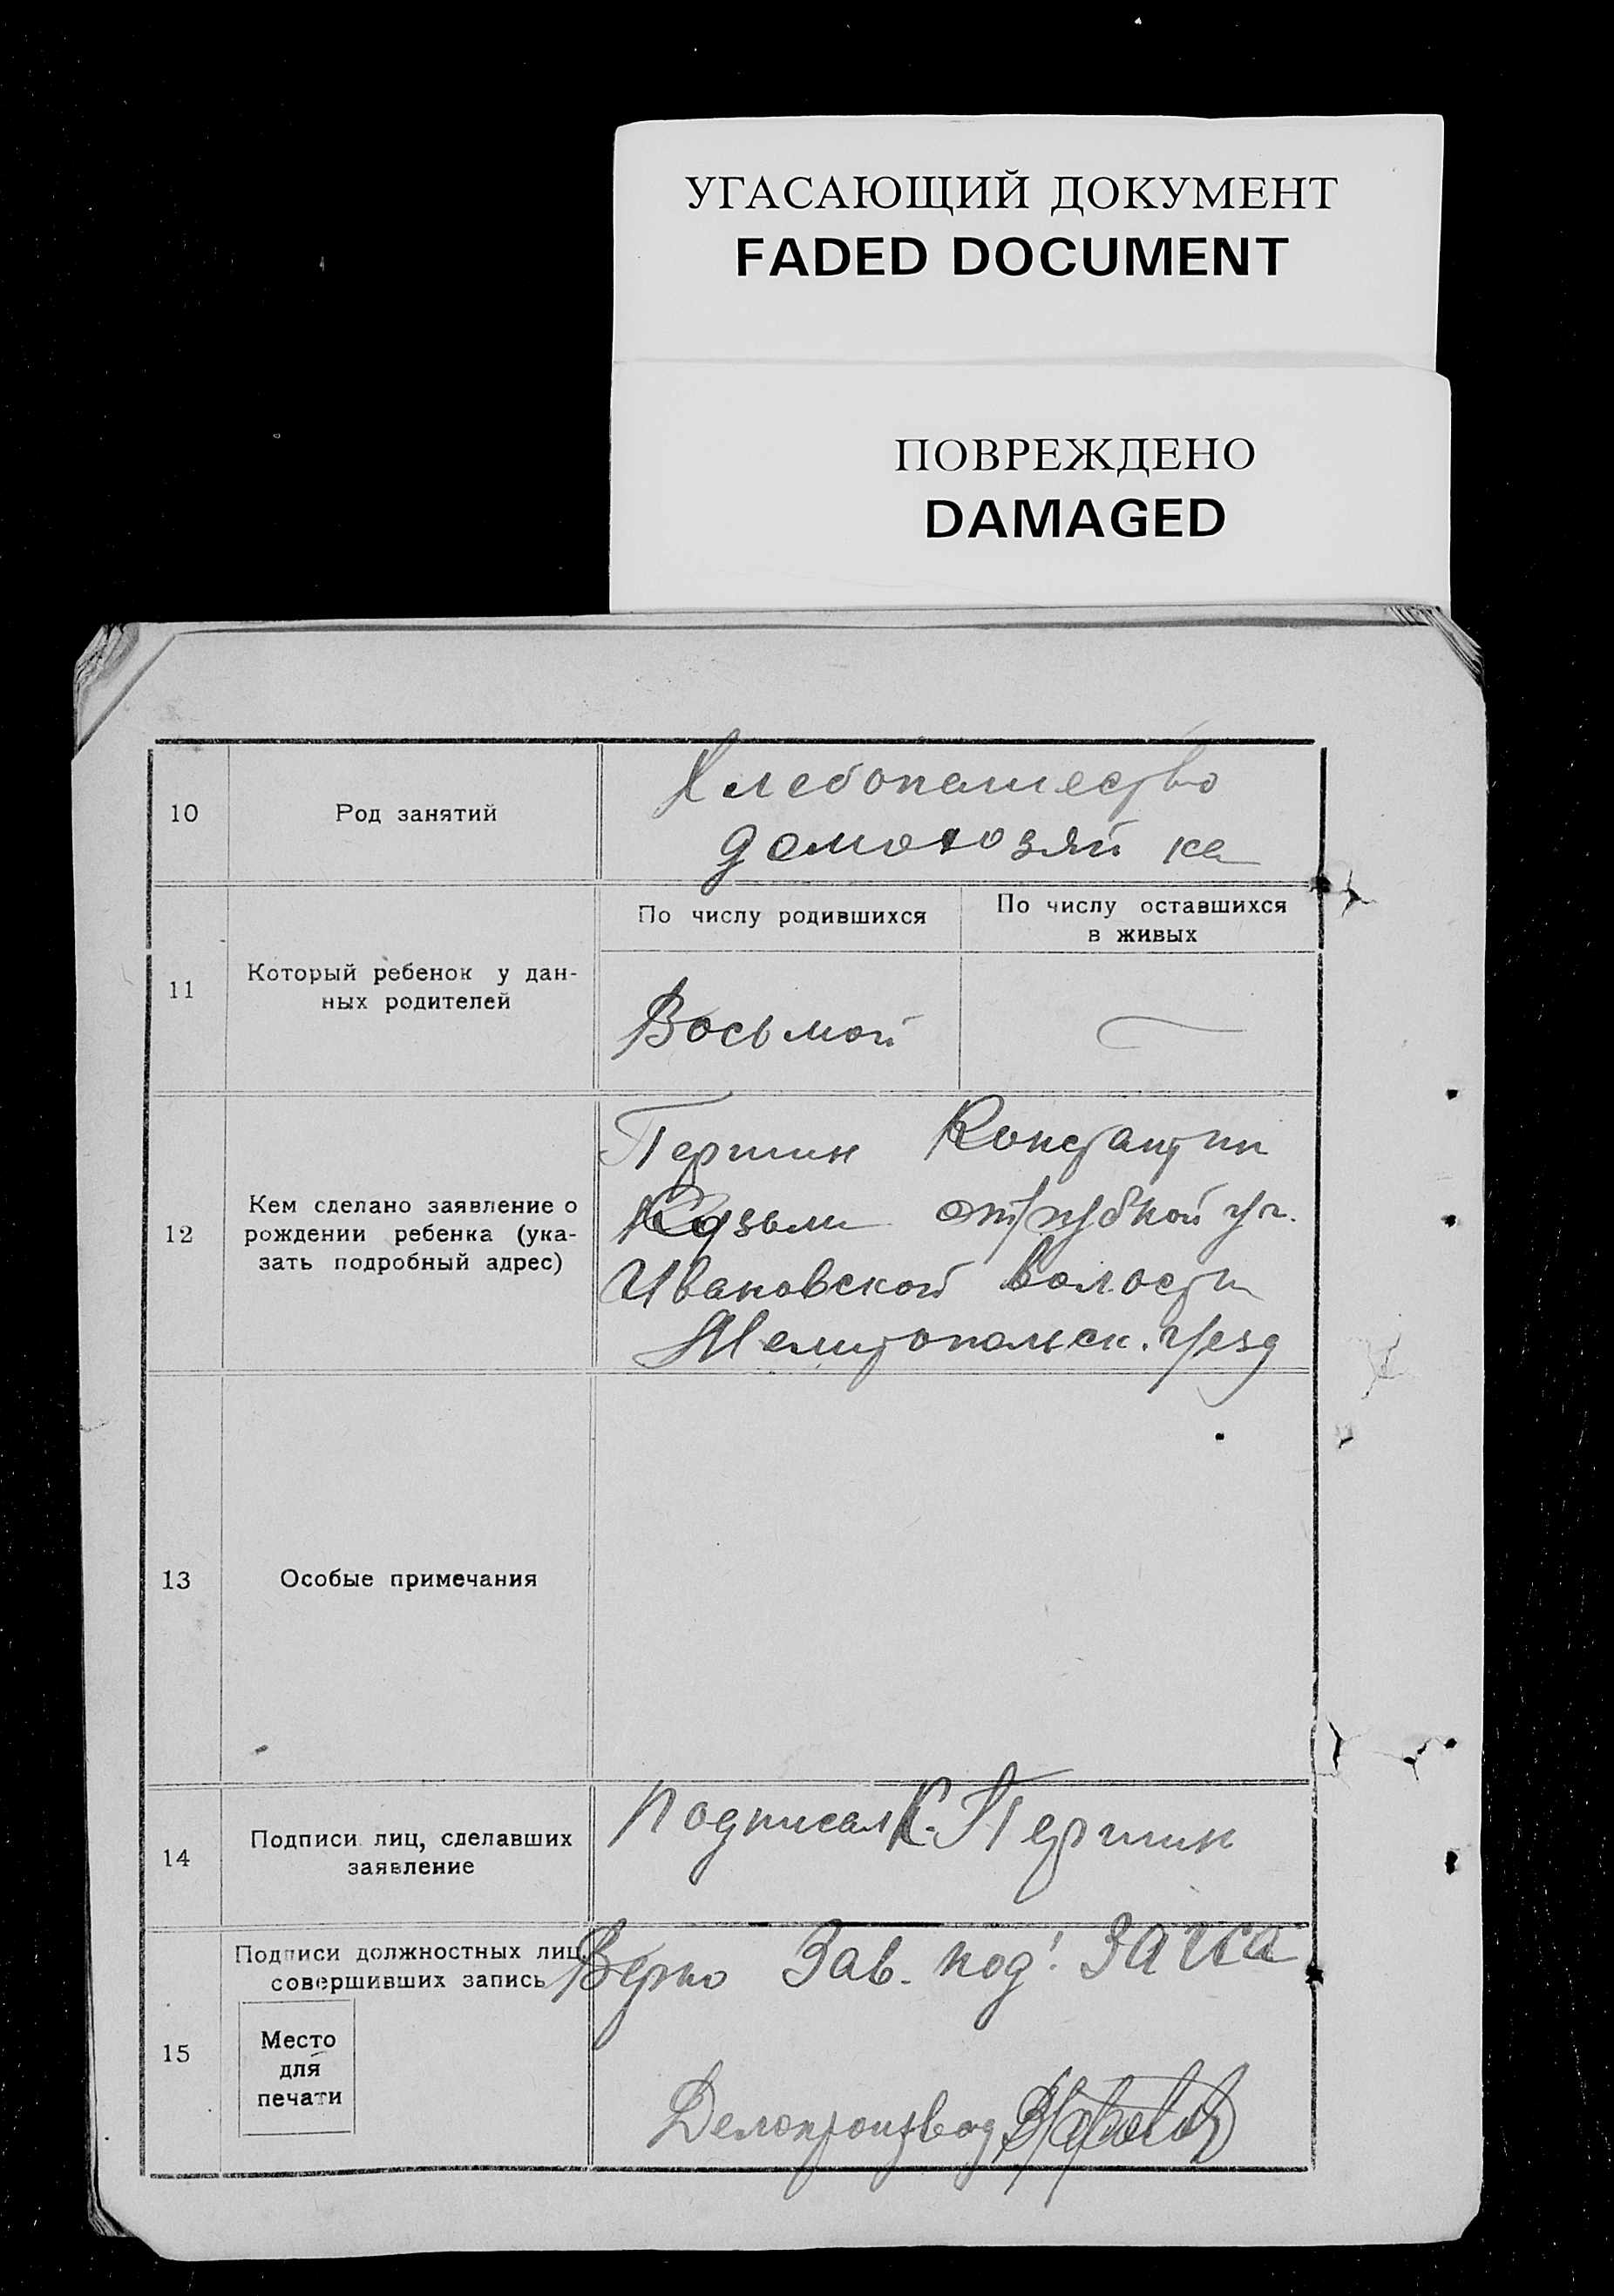 УГАСАЮЩИЙ ДОКУМЕНТ
FADED DOCUMENT
ПОВРЕЖДЕНО
DAMAGED
10
Род занятий
Хлебопашество
домохозяйка
11
Который ребенок у дан-
ных родителей
По числу родившихся
По числу оставшихся
в живых
Восьмой
12
Кем сделано заявление о
рождении ребенка (ука-
зать подробный адрес)
Першин Константин
Кузьми отрубной уч.
Ивановской волости
Мелитопольск. уезд
13
Особые примечания
14
Подписи лиц, сделавших
заявление
Подписал К. Першин
15
Подписи должностных лиц,
совершивших запись
Место
для
печати
Верно Зав. под! ЗАГСа
Делопроизвод